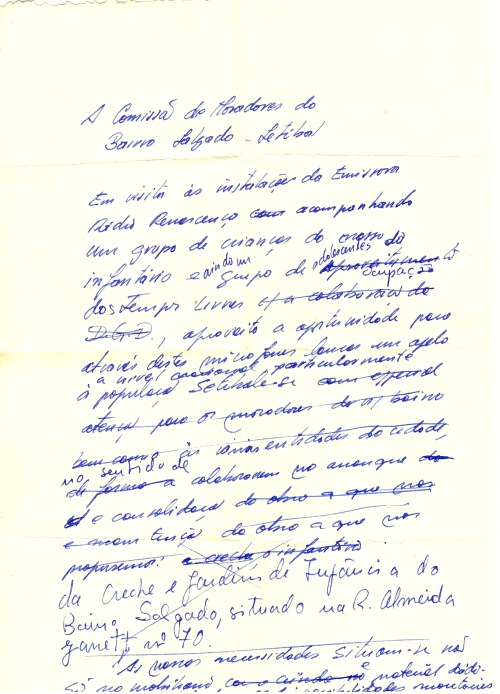 A Comissão de Moradores do
Bairro Salgado - Setúbal
Em visita às instalações da Emissora
Rádio Renascença com acompanhando
um grupo de crianças do nosso
infantário e ainda um grupo de adolescentes da
aproveitamento ocupação
dos tempos livres e a colaboração da
D.G.D., aproveito a oportunidade para
através destes microfones lançar um apelo
a nível nacional, particularmente
à população Setubalense com especial
atenção para os moradores do n/ bairro
bem como às várias entidades da cidade,
no sentido de
de forma a colaborarem no arranque da
e consolidação da obra a que nos
e manutenção da obra a que nos
propusemos: a creche e o infantário
da Creche e Jardim de Infância do
Bairro Salgado, situado na R. Almeida
Garrett nº 70.
As nossas necessidades situam-se não
só no mobiliário como ainda no e material didá-